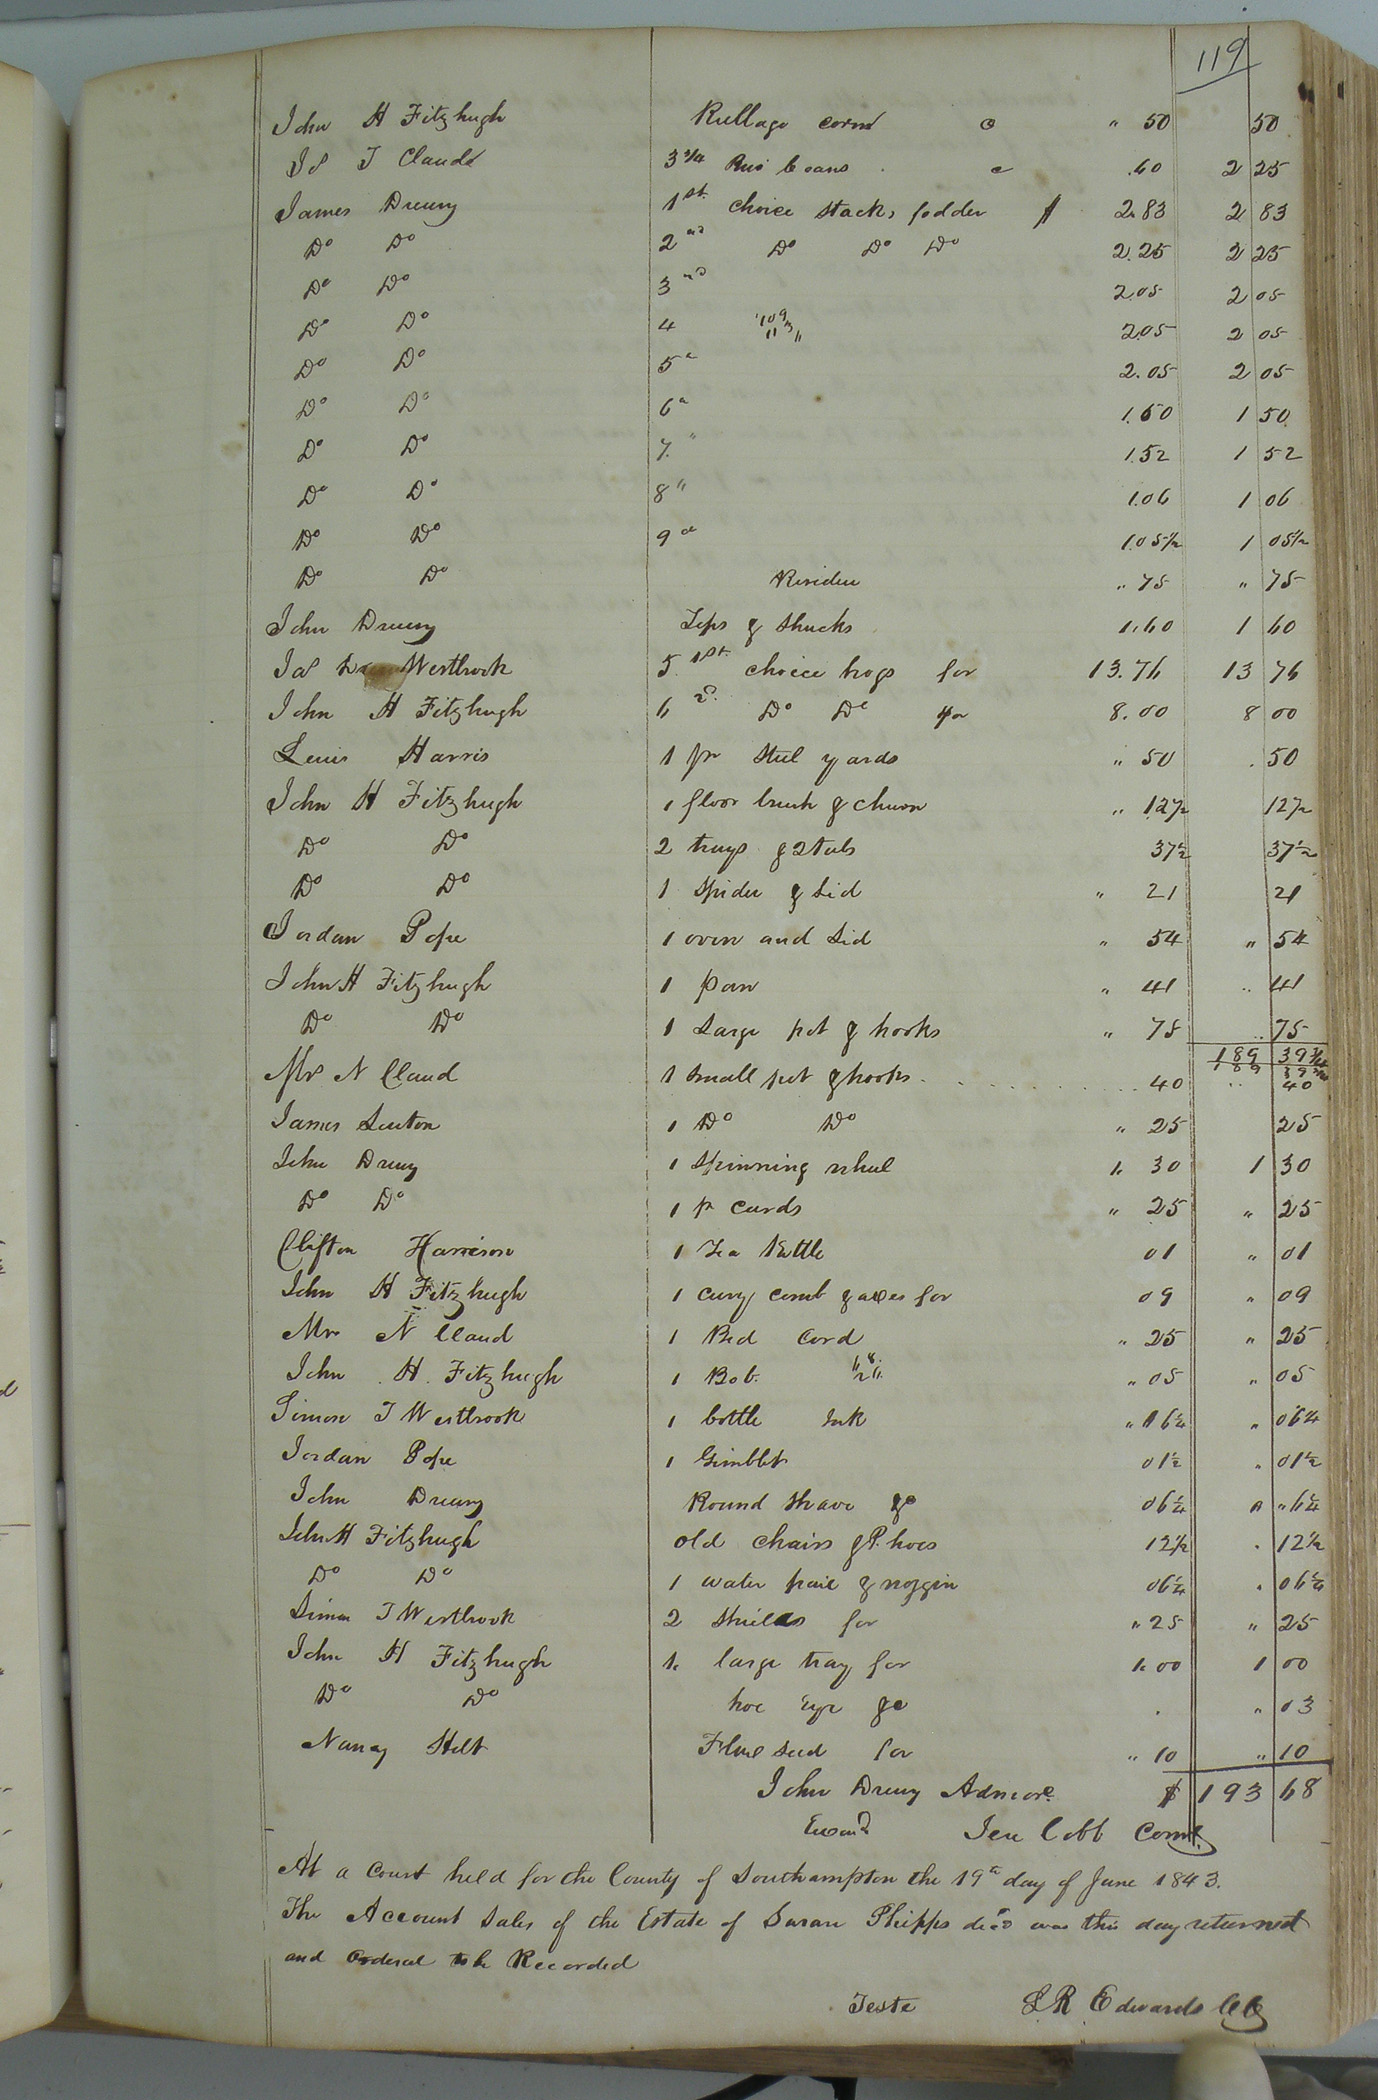 119
John H Fitzhugh Rullage corn @ " 50 50
Js T Claud 3 3/4 Bus beans @ .60 2 25
James Drewry 1st choice stacks fodder $ 2.83 2 83
Do Do 2nd Do Do Do 2.25 2 25
Do Do 3rd 2.05 2 05
Do Do 4 2.05 2 05
Do Do 5" 2.05 2 05
Do Do 6" 1.50 1 50
Do Do 7" 1.52 1 52
Do Do 8" 1.06 1 06
Do Do 9" 1.05 1/2 1 05 1/2
Do Do Residue " 75 " 75
John Drewry Tops & Shucks 1.60 1 60
Js Westbrook 5 1st choice hogs for 13.76 13 76
John H Fitzhugh 6 2d Do Do for 8.00 8 00
Lewis Harris 1 pr Steel yards " 50 . 50
John H Fitzhugh 1 floor brush & churn " 12 1/2 12 1/2
Do Do 2 trays & 2 tubs 37 1/2 37 1/2
Do Do 1 Spider & Lid " 21 21
Jordan Pope 1 oven and Lid " 54 " 54
John H Fitzhugh 1 pan " 41 " 41
Do Do 1 Large pot & hooks " 75 " 75
189 39 3/4
189 39 3/4
Mrs N Claud 1 small pot & hooks 40 " 40
James Senton 1 Do Do " 25 25
John Drewry 1 Spinning wheel 1. 30 1 30
Do Do 1 p cards " 25 " 25
Clifton Harrison 1 Tea Kettle 01 " 01
John H Fitzhugh 1 curry comb & axes for 09 " 09
Mrs N Claud 1 Bed Cord " 25 " 25
John H. Fitzhugh 1 Bob. " 05 " 05
Simon T Westbrook 1 bottle Ink " 06 1/4 " 06 1/4
Jordan Pope 1 Gimblet 01 1/2 " 01 1/2
John Drewry Round Shave &c 06 1/4 " " 6 1/4
John H Fitzhugh old chairs & P. hoes 12 1/2 . 12 1/2
Do Do 1 water pail & noggin 06 1/4 . 06 1/4
Simon T Westbrook 2 for " 25 " 25
John H Fitzhugh 1. large tray for 1. 00 1 00
Do Do hoe Eye &c . " 03
Nancy Holt seed for " 10 " 10
John Drewry Admor. $ 193 68
Examd Jere Cobb Comr.
At a Court held for the County of Southampton the 19th day of June 1843.
The Account Sales of the Estate of Susan Phipps decd was this day returned
and Ordered to be Recorded
Teste L R Edwards CC